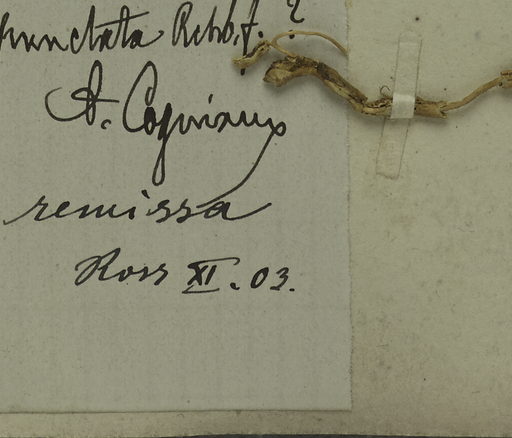 punctata Rchb. f. ?
A. Cogniaux
remissa
Ross XI. 03.